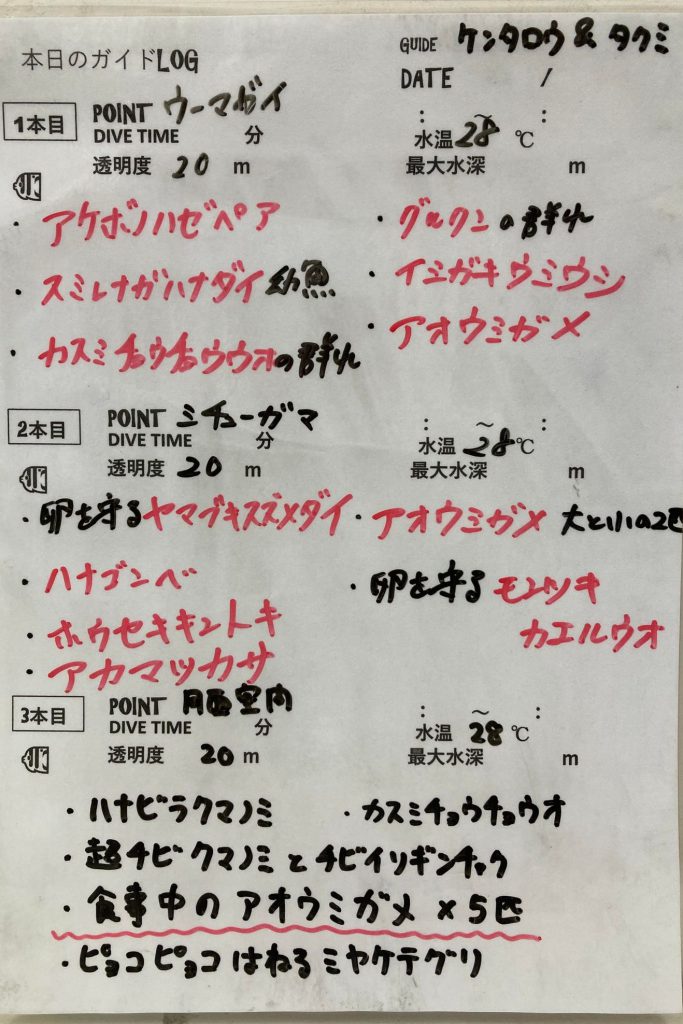 本日のガイドLOG
GUIDE ケンタロウ & タクミ
DATE /
1本目 POINT ウーマガイ
DIVE TIME 分 : ～ :
水温 28 ℃
透明度 20 m 最大水深 m
・アケボノハゼペア
・グルクンの群れ
・スミレナガハナダイ幼魚
・イシガキウミウシ
・カスミチョウチョウウオの群れ
・アオウミガメ
2本目 POINT ミチューガマ
DIVE TIME 分 : ～ :
水温 28 ℃
透明度 20 m 最大水深 m
・卵を守るヤマブキスズメダイ
・アオウミガメ 大と小の2匹
・ハナゴンベ
・卵を守る モンツキ
カエルウオ
・ホウセキキントキ
・アカマツカサ
3本目 POINT
DIVE TIME 分 : ～ :
水温 28 ℃
透明度 20 m 最大水深 m
・ハナビラクマノミ
・カスミチョウチョウオ
・超チビクマノミとチビイソギンチャク
・食事中のアオウミガメ ×5匹
・ピョコピョコはねるミヤケテグリ